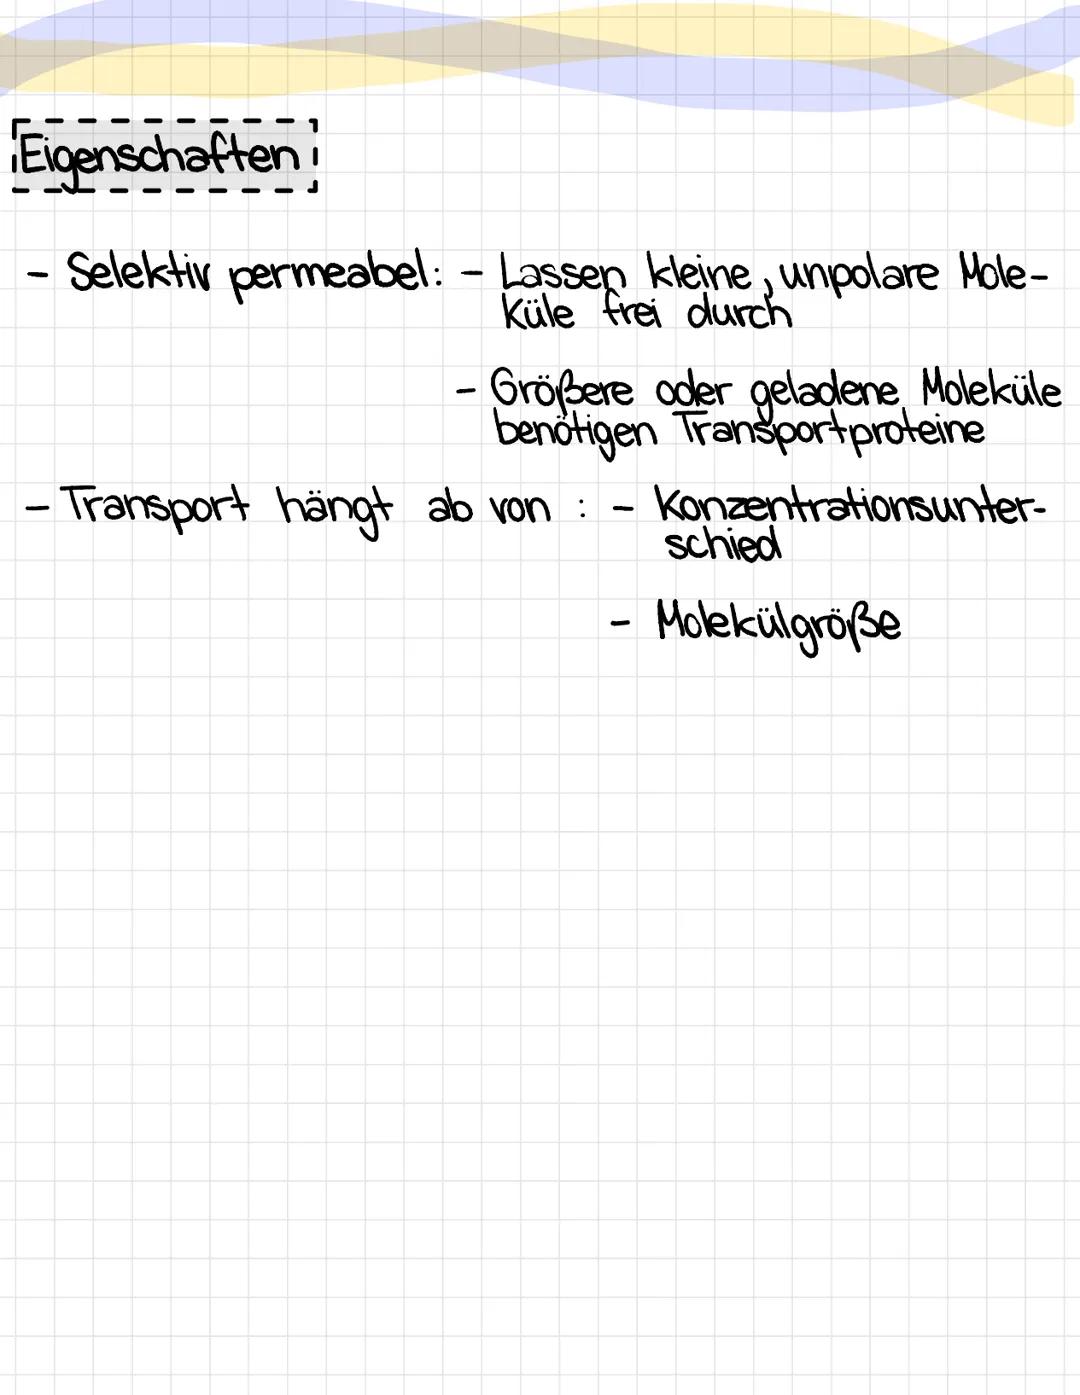 Eigenschaften
- Selektiv permeabel: - Lassen kleine, unpolare Mole-
küle frei durch
- Größere oder geladene Moleküle
benötigen Transportproteine
- Transport hängt ab von : - Konzentrationsunter-
schied
- Molekülgröße